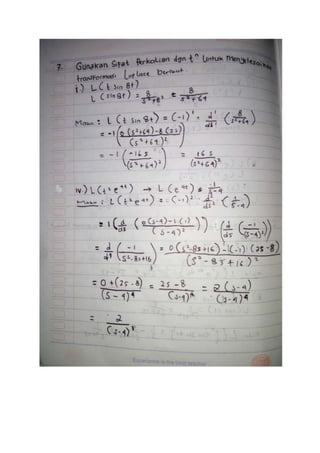 7. Gunakan Sifat Perkalian dgn t^n Untuk menyelesaikan
transformasi Laplace berikut.
i.) L ( t sin 8t )
L ( sin 8t ) = 8/(s²+8²) = 8/(s²+64)
Maka : L ( t sin 8t ) = (-1)¹ · d¹/ds¹ ( 8/(s²+64) )
= -1 ( (0 (s²+64) - 8 (2s))/(s²+64)² )
= -1 ( -16 s/(s²+64)² ) = 16 s/(s²+64)²
iv.) L ( t² e^4t ) → L ( e^4t ) = 1/(s-4)
Maka : L ( t² e^4t ) = (-1)² · d²/ds² ( 1/(s-4) )
= 1 ( d/ds ( (0 (s-4) - 1 (1))/(s-4)² ) ) = ( d/ds ( -1/(s-4)² ) )
= d/ds ( -1/(s²-8s+16) ) = (0 (s²-8s+16) - (-1) (2s-8))/(s²-8s+16)²
= (0 + (2s-8))/(s-4)⁴ = (2s-8)/(s-4)⁴ = 2 (s-4)/(s-4)⁴
= 2/(s-4)³
Experience is the best teacher